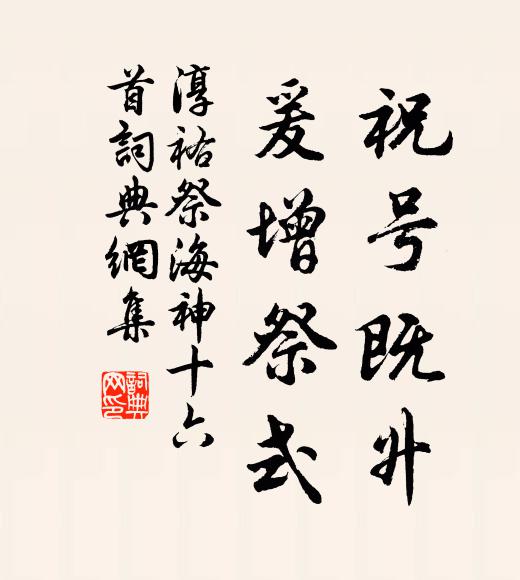 祝号既升
爰增祭式
淳祐祭海神十六
首詞典網集
詞典網印